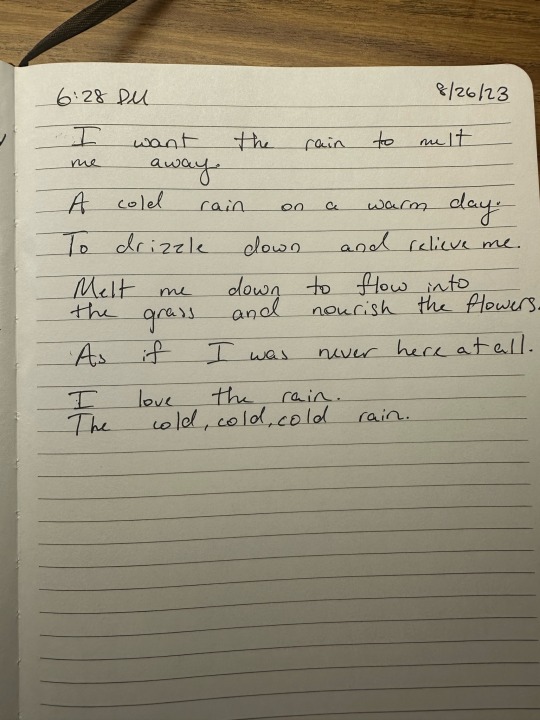 6:28 PM 8/26/23
I want the rain to melt
me away.
A cold rain on a warm day.
To drizzle down and relieve me.
Melt me down to flow into
the grass and nourish the flowers.
As if I was never here at all.
I love the rain.
The cold, cold, cold rain.